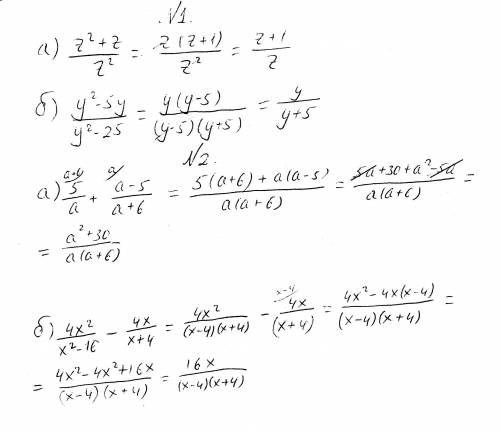 №1.
а) (z²+z)/z² = z(z+1)/z² = (z+1)/z
б) (y²-5y)/(y²-25) = y(y-5)/((y-5)(y+5)) = y/(y+5)
№2.
а) 5/a (a+6) + (a-5)/(a+6) (a) = (5(a+6)+a(a-5))/(a(a+6)) = (5a+30+a²-5a)/(a(a+6)) =
= (a²+30)/(a(a+6))
б) 4x²/(x²-16) - 4x/(x+4) = 4x²/((x-4)(x+4)) - 4x/(x+4) (x-4) = (4x²-4x(x-4))/((x-4)(x+4)) =
= (4x²-4x²+16x)/((x-4)(x+4)) = 16x/((x-4)(x+4))